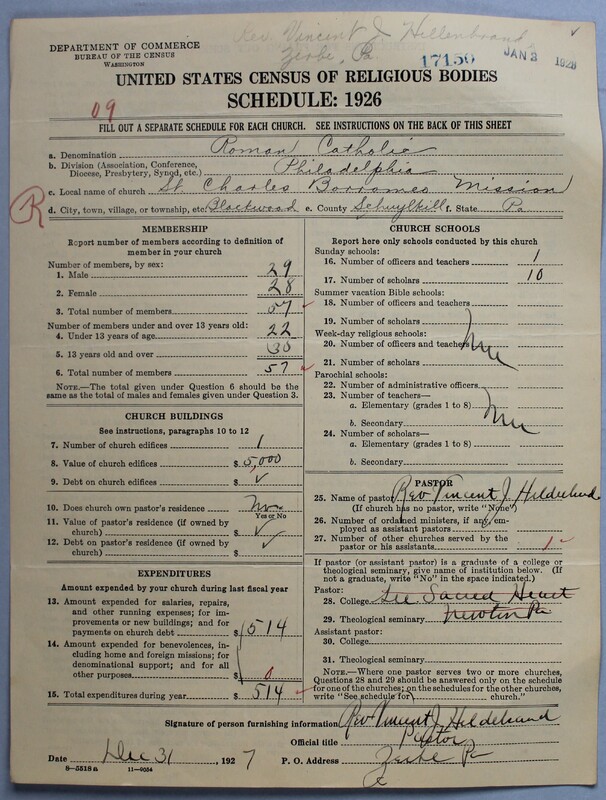 Rev. Vincent J. Hillenbrand
Zerbe, Pa
17150
JAN 3 1928
DEPARTMENT OF COMMERCE
BUREAU OF THE CENSUS
WASHINGTON
UNITED STATES CENSUS OF RELIGIOUS BODIES
SCHEDULE: 1926
09
FILL OUT A SEPARATE SCHEDULE FOR EACH CHURCH. SEE INSTRUCTIONS ON THE BACK OF THIS SHEET
a. Denomination Roman Catholic
b. Division (Association, Conference, Diocese, Presbytery, Synod, etc.) Philadelphia
c. Local name of church St. Charles Borromeo Mission
R
d. City, town, village, or township, etc. Blackwood e. County Schuylkill f. State Pa
MEMBERSHIP
Report number of members according to definition of
member in your church
Number of members, by sex:
1. Male 29
2. Female 28
3. Total number of members 57
Number of members under and over 13 years old:
4. Under 13 years of age 22
5. 13 years old and over 35
6. Total number of members 57
NOTE.—The total given under Question 6 should be
same as the total of males and females given under Question 3.
CHURCH BUILDINGS
See instructions, paragraphs 10 to 12
7. Number of church edifices 1
8. Value of church edifices $ 5,000
9. Debt on church edifices $ ✓
10. Does church own pastor's residence No
Yes or No
11. Value of pastor's residence (if owned by
church) $ ✓
12. Debt on pastor's residence (if owned by
church) $ ✓
EXPENDITURES
Amount expended by your church during last fiscal year
13. Amount expended for salaries, repairs,
and other running expenses; for im-
provements or new buildings; and for
payments on church debt $ 514
14. Amount expended for benevolences,
including home and foreign missions; for
denominational support; and for all
other purposes $ 0
15. Total expenditures during year $ 514
CHURCH SCHOOLS
Report here only schools conducted by this church
Sunday schools:
16. Number of officers and teachers 1
17. Number of scholars 10
Summer vacation Bible schools:
18. Number of officers and teachers
19. Number of scholars
Week-day religious schools:
20. Number of officers and teachers
21. Number of scholars
Parochial schools:
22. Number of administrative officers
23. Number of teachers—
a. Elementary (grades 1 to 8)
b. Secondary
24. Number of scholars—
a. Elementary (grades 1 to 8)
b. Secondary
PASTOR
25. Name of pastor Rev Vincent J.
(If church has no pastor, write "None")
26. Number of ordained ministers, if any, em-
ployed as assistant pastors
27. Number of other churches served by the
pastor or his assistants 1
If pastor (or assistant pastor) is a graduate of a college or
theological seminary, give name of institution below. (If
not a graduate, write "No" in the space indicated.)
Pastor:
28. College See Sacred Heart
29. Theological seminary Pa
Assistant pastor:
30. College
31. Theological seminary
NOTE.—Where one pastor serves two or more churches,
Questions 28 and 29 should be answered only on the schedule
for one of the churches; on the schedules for the other churches,
write "See schedule for church."
Signature of person furnishing information Rev Vincent J.
Official title Pastor
Date Dec 31, 1927 P. O. Address Zerbe Pa
8—5518 a 11—9054